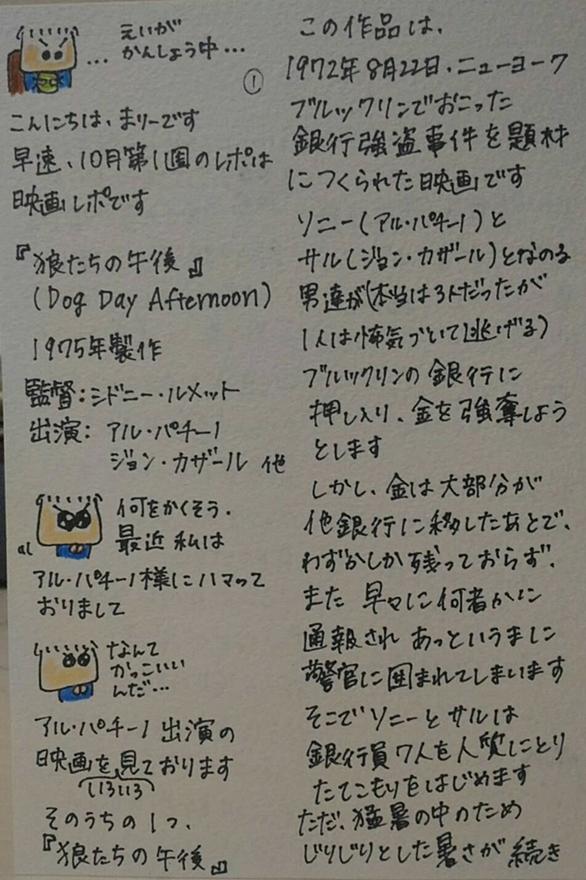 えいが
かんしょう中…
…
①
こんにちは、まりーです
早速、10月第1週のレポは
映画レポです
『狼たちの午後』
(Dog Day Afternoon)
1975年製作
監督:シドニー・ルメット
出演: アル・パチーノ
ジョン・カザール 他
何をかくそう、
最近 私は
al
アル・パチーノ様にハマって
おりまして
なんて
かっこいい
んだ…
アル・パチーノ出演の
映画を見ております
いろいろ
そのうちの1つ、
『狼たちの午後』
この作品は、
1972年8月22日、ニューヨーク
ブルックリンでおこった
銀行強盗事件を題材
につくられた映画です
ソニー(アル・パチーノ)と
サル(ジョン・カザール)となのる
男達が(本当は3人だったが
1人は怖気づいて逃げる)
ブルックリンの銀行に
押し入り、金を強奪しよう
とします
しかし、金は大部分が
他銀行に移したあとで、
わずかしか残っておらず、
また 早々に何者かに
通報され あっというまに
警官に囲まれてしまいます
そこでソニーとサルは
銀行員7人を人質にとり
たてこもりをはじめます
ただ、猛暑の中のため
じりじりとした暑さが続き